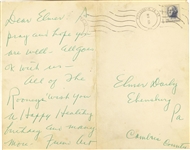 Dear Elmer: I
pray and hope you
are well. All goes
ok with us —
All of the
wish you
a Happy Healthy
Birthday and many
more.
Elmer Daily
Ebensburg
Pa
Cambria County